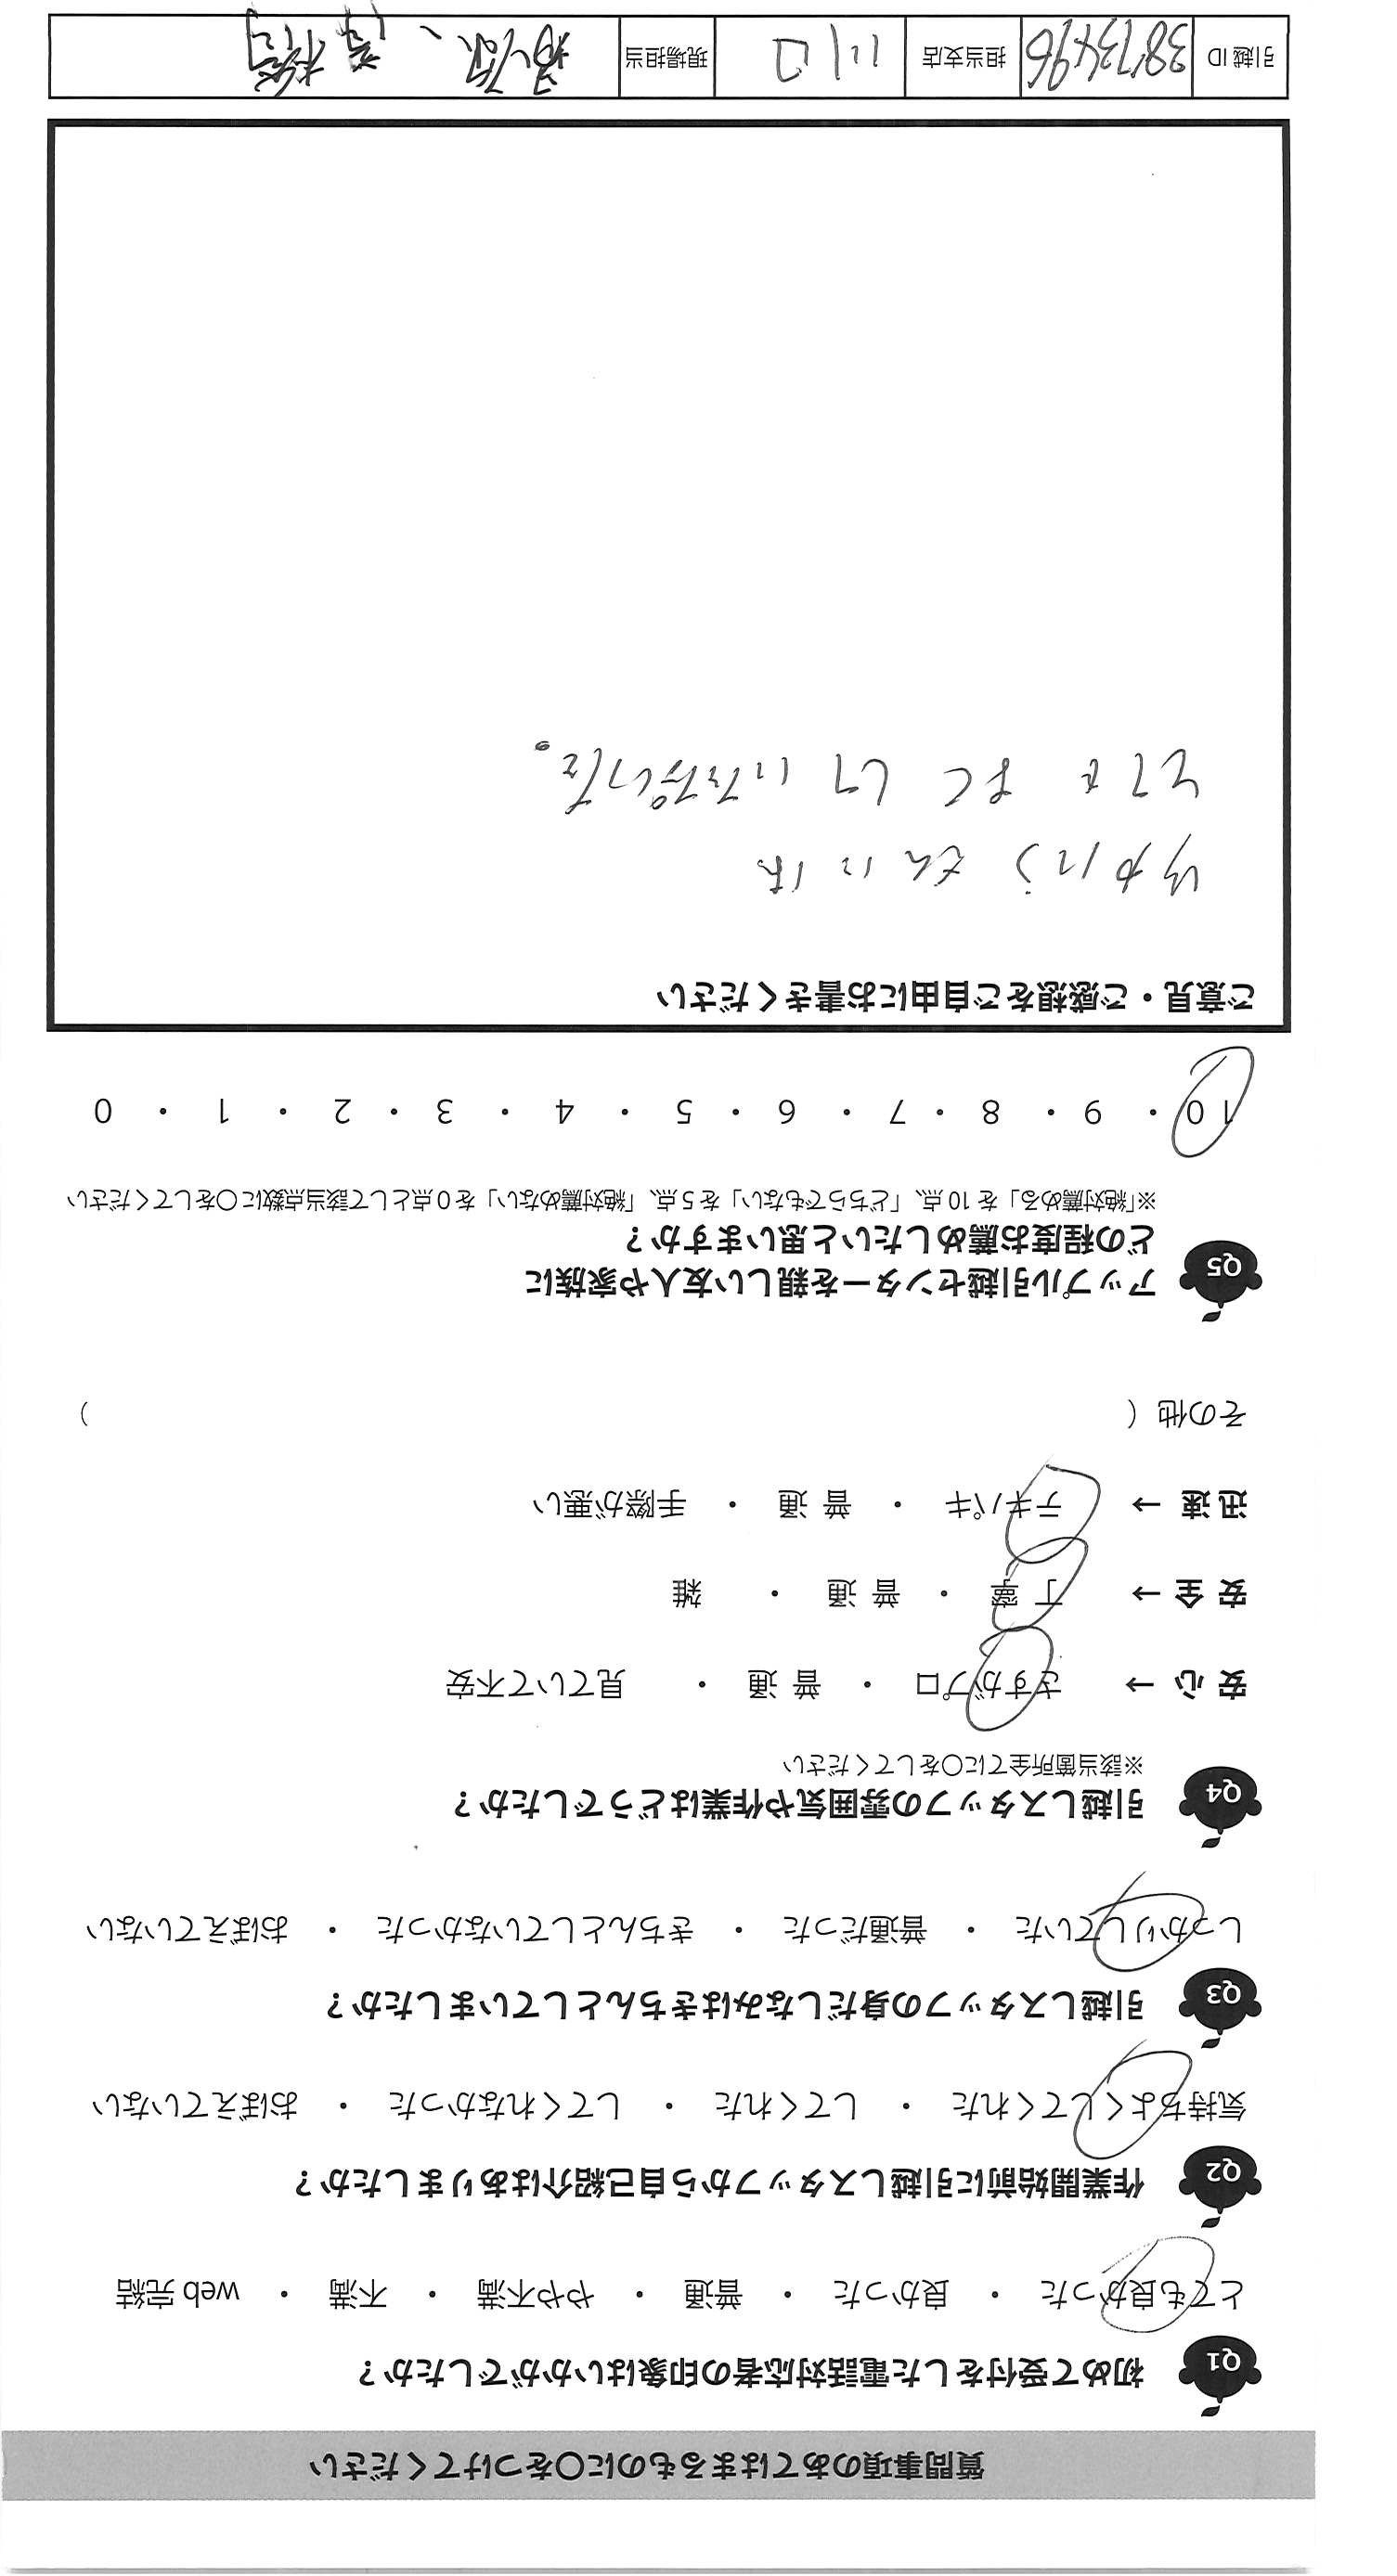 質問事項のあてはまるものに〇をつけてください
Q1 初めて受付をした電話対応者の印象はいかがでしたか？
とても良かった ・ 良かった ・ 普通 ・ やや不満 ・ 不満 ・ web 完結
Q2 作業開始前に引越しスタッフから自己紹介はありましたか？
気持ちよくしてくれた ・ してくれた ・ してくれなかった ・ おぼえていない
Q3 引越しスタッフの身だしなみはきちんとしていましたか？
しっかりしていた ・ 普通だった ・ きちんとしていなかった ・ おぼえていない
Q4 引越しスタッフの雰囲気や作業はどうでしたか？
※該当箇所全てに〇をしてください
安 心 → さすがプロ ・ 普 通 ・ 見ていて不安
安 全 → 丁 寧 ・ 普 通 ・ 雑
迅 速 → テキパキ ・ 普 通 ・ 手際が悪い
その他（ ）
Q5 アップル引越センターを親しい友人や家族に
どの程度お薦めしたいと思いますか？
※「絶対薦める」を 10 点、「どちらでもない」を 5 点、「絶対薦めない」を 0 点として該当点数に〇をしてください
10 ・ 9 ・ 8 ・ 7 ・ 6 ・ 5 ・ 4 ・ 3 ・ 2 ・ 1 ・ 0
ご意見・ご感想をご自由にお書きください
さんには
とても よく して いただいた。
引越 ID 38734496 担当支店 川口 現場担当 高橋